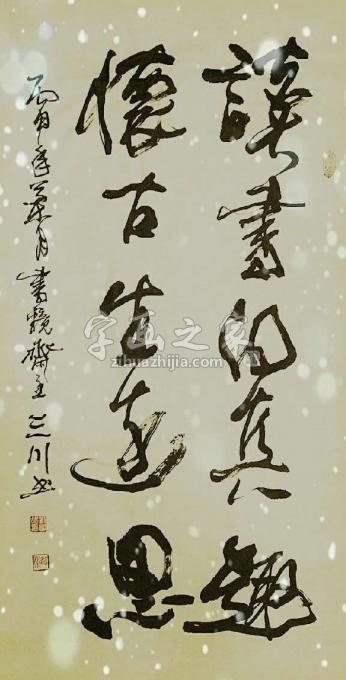 讀書得真趣
懷古生遠思
丙申年月書齋主三川书
字画之家
zihuazhijia.com